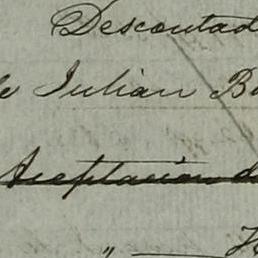 Descontad
le Julian B
Aceptacion d
"